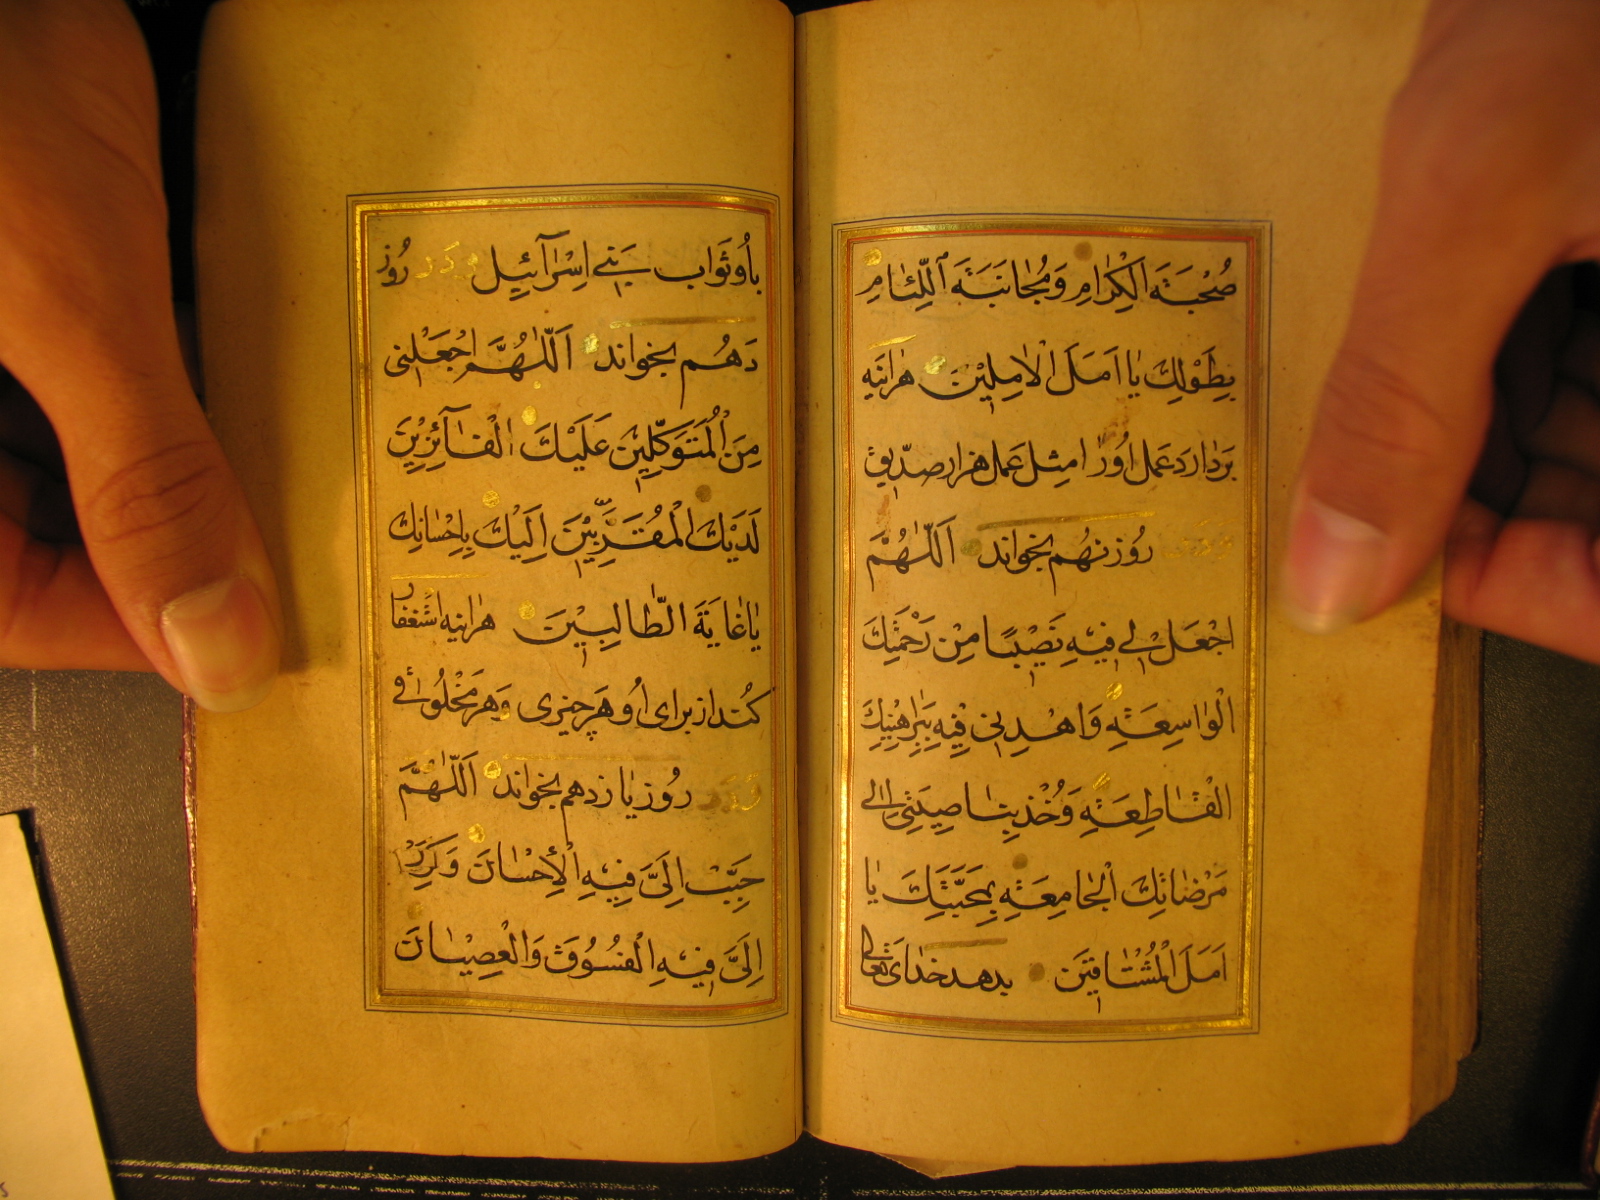 صُحْبَةَ الْكِرٰامِ وَمُجٰانَبَةَ اللِّئٰامِ
بِطَوْلِكَ يٰا اَمَلَ الْاٰمِلِيْنَ هرٰاينه
بردارد عمل اورا مثل عمل هزار صدّيق
ودر روز نهم بخواند اَللّٰهُمَّ
اجْعَلْ لِي فِيهِ نَصْيبًا مِنْ رَحْمَتِكَ
الْوٰاسِعَةِ وَاهْدِنِي فِيهِ بِبَرٰاهِينِكَ
الْقٰاطِعَةِ وَخُذْ بِنٰاصِيَتِي اِلٰى
مَرْضٰاتِكَ الْجٰامِعَةِ بِمَحَبَّتِكَ يٰا
اَمَلَ الْمُشْتٰاقيَن بدهد خداى تعالى
باو ثواب بَنِي اِسْرٰآئِيل ودر روز
دَهُم بخواند اَللّٰهُمَّ اجْعَلْنِي
مِنَ الْمُتَوَكِّلِينَ عَلَيْكَ الْفٰآئِزِيْنَ
لَدَيْكَ الْمُقَرَّبِّيْنَ اِلَيْكَ بِاِحْسٰانِكَ
يٰا غٰايَةَ الطّٰالِبِيْنَ هرٰاينه استغفار
كُند از براى اُو هَر چيزى وَهر مَخْلُوقى
ودر رُوز يٰازدهم بخواند اَللّٰهُمَّ
حَبِّبْ اِلَىَّ فِيهِ الْاِحْسٰانَ وَكَرِّهْ
اِلَىَّ فِيهِ الْفُسُوُقَ وَالْعِصْيٰانَ